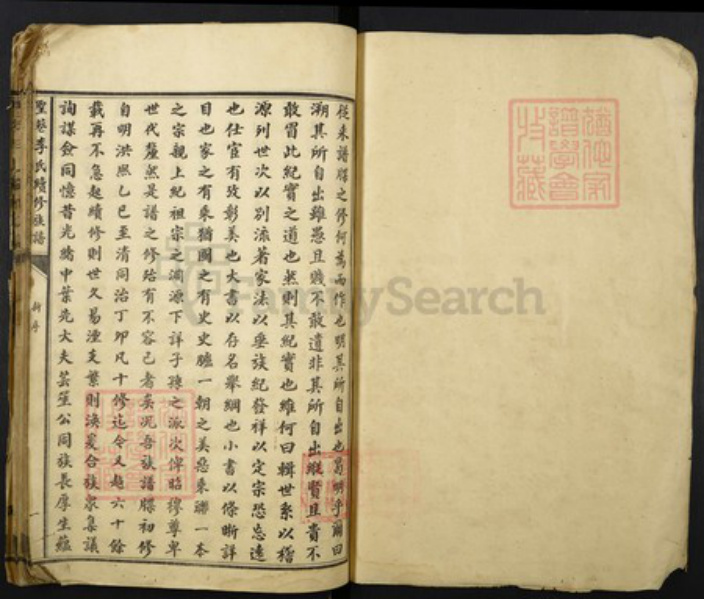 從來譜牒之修何為而作也明其所自出也曷明乎爾曰
溯其所自出雖愚且賤不敢遺非其所自出雖賢且貴不
敢冒此紀實之道也然則其紀實也維何曰輯世系以稽
源列世次以別流著家法以垂族紀發祥以定宗恐忘遠
也仕宦有攷彰美也大書以存名舉綱也小書以條晰詳
目也家之有乘猶國之有史史臚一朝之美惡乘聯一本
之宗親上紀祖宗之淵源下詳子孫之派次俾昭穆尊卑
世代釐然是譜之修殆有不容已者矣況吾族譜牒初修
自明洪熙乙巳至清同治丁卯凡十修迄今又越六十餘
載再不急起續修則世久易湮支繁則渙爰合族眾集議
詢謀僉同憶昔光緒中葉先大夫芸笙公同族長厚生蘊
李氏續修族譜
新序
一
FamilySearch